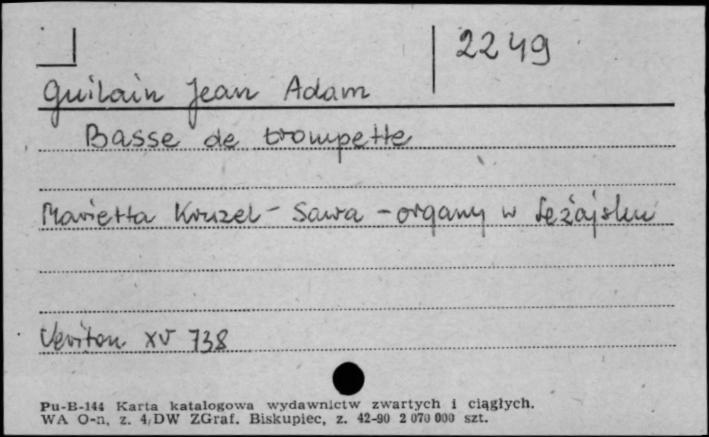 2249
Guilain Jean Adam
Basse de trompette
Marietta Kruzel - Sawa - organy w Leżajsku
Veriton XV 738
Pu-B-144 Karta katalogowa wydawnictw zwartych i ciągłych.
WA O-n, z. 4/DW ZGraf. Biskupiec, z. 42-90 2 070 000 szt.